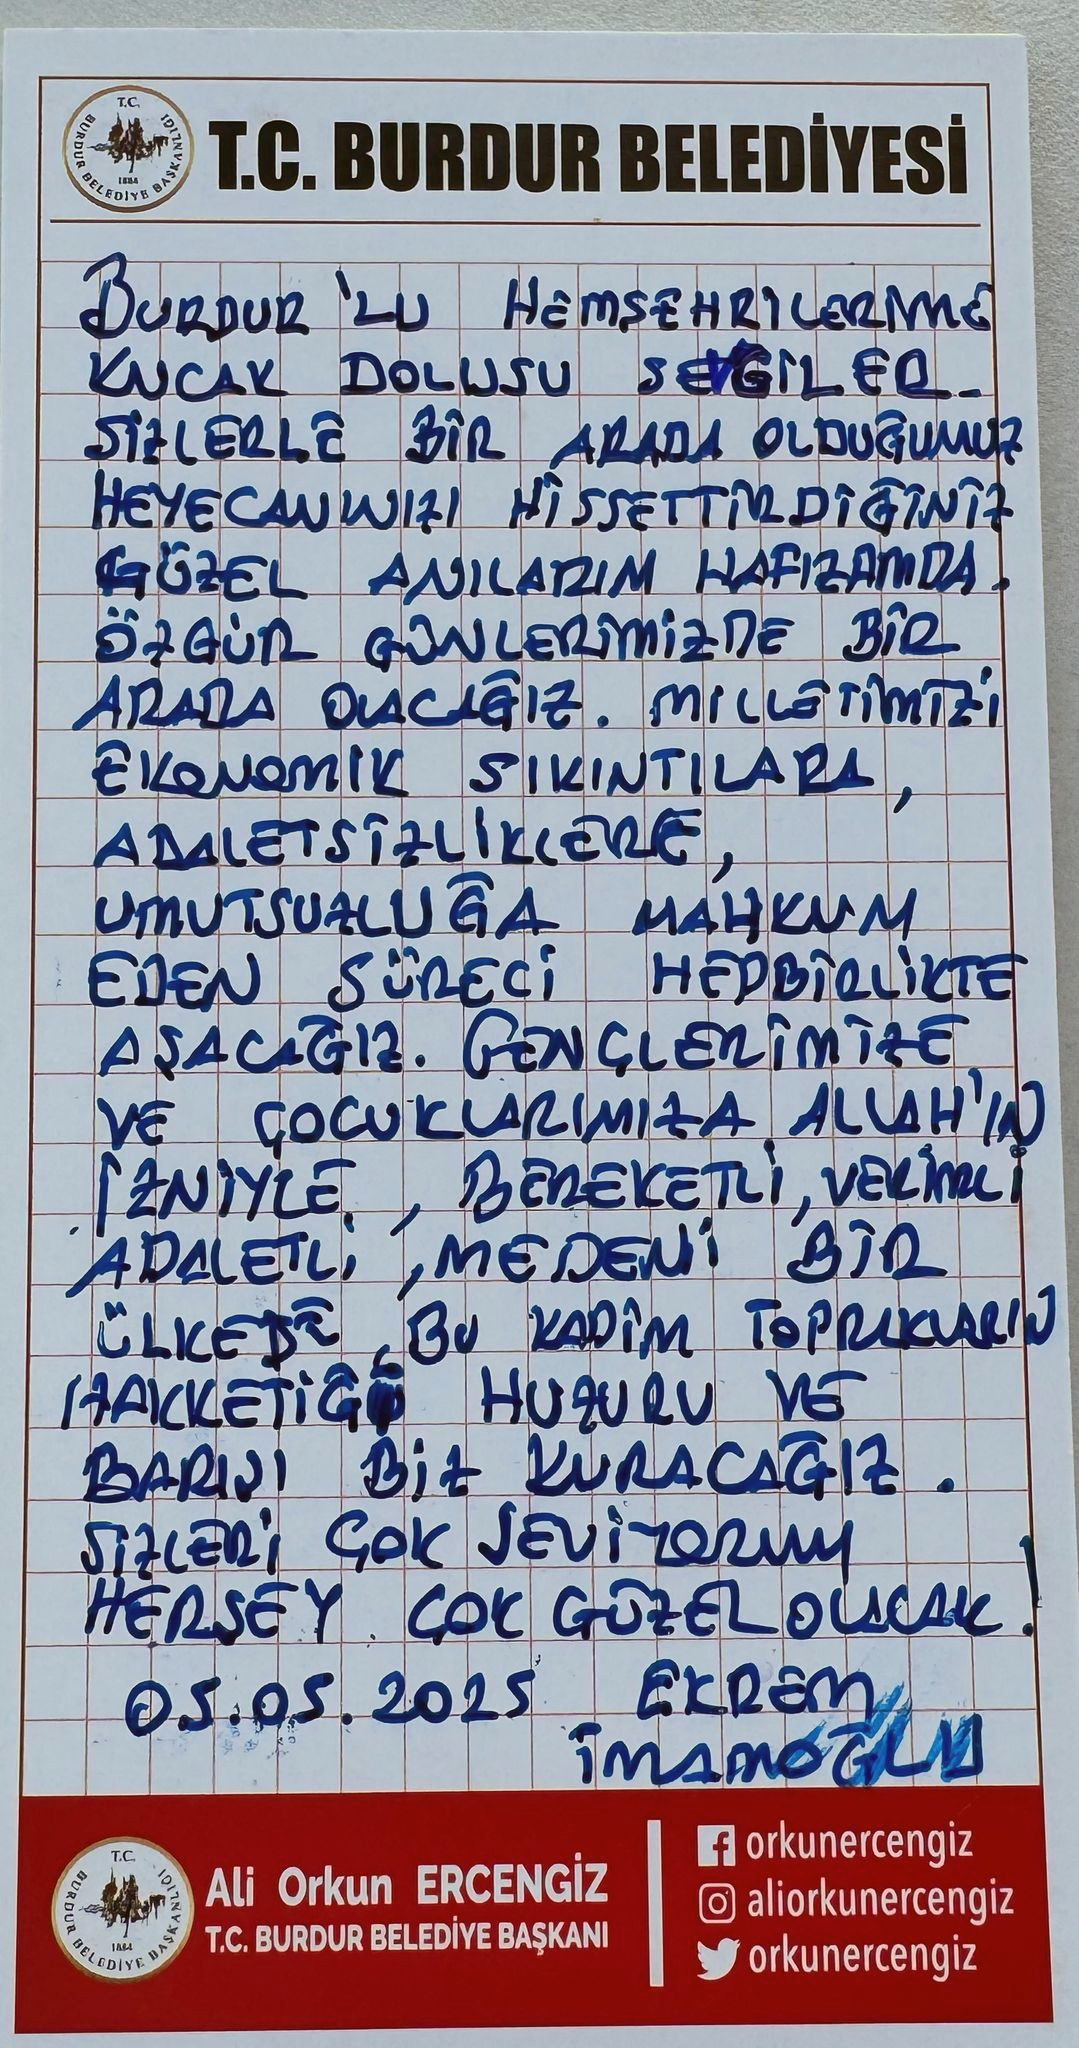 T.C. BURDUR BELEDİYE BAŞKANLIĞI 1884
T.C. BURDUR BELEDİYESİ
BURDUR'LU HEMŞEHRİLERİME
KUCAK DOLUSU SEVGİLER.
SİZLERLE BİR ARADA OLDUĞUMUZ
HEYECANINIZI HİSSETTİRDİĞİNİZ
GÜZEL ANILARIM HAFIZAMDA.
ÖZGÜR GÜNLERİMİZDE BİR
ARADA OLACAĞIZ. MİLLETİMİZİ
EKONOMİK SIKINTILARA,
ADALETSİZLİKLERE,
UMUTSUZLUĞA MAHKUM
EDEN SÜRECİ HEPBİRLİKTE
AŞACAĞIZ. GENÇLERİMİZE
VE ÇOCUKLARIMIZA ALLAH'IN
İZNİYLE, BEREKETLİ, VERİMLİ
ADALETLİ, MEDENİ BİR
ÜLKEDE, BU KADİM TOPRAKLARIN
HAKKETİĞİ HUZURU VE
BARIŞI BİZ KURACAĞIZ.
SİZLERİ ÇOK SEVİYORUM
HERŞEY ÇOK GÜZEL OLACAK!
05.05.2025 EKREM
İMAMOĞLU
T.C. BURDUR BELEDİYE BAŞKANLIĞI 1884
Ali Orkun ERCENGİZ
T.C. BURDUR BELEDİYE BAŞKANI
orkunercengiz
aliorkunercengiz
orkunercengiz